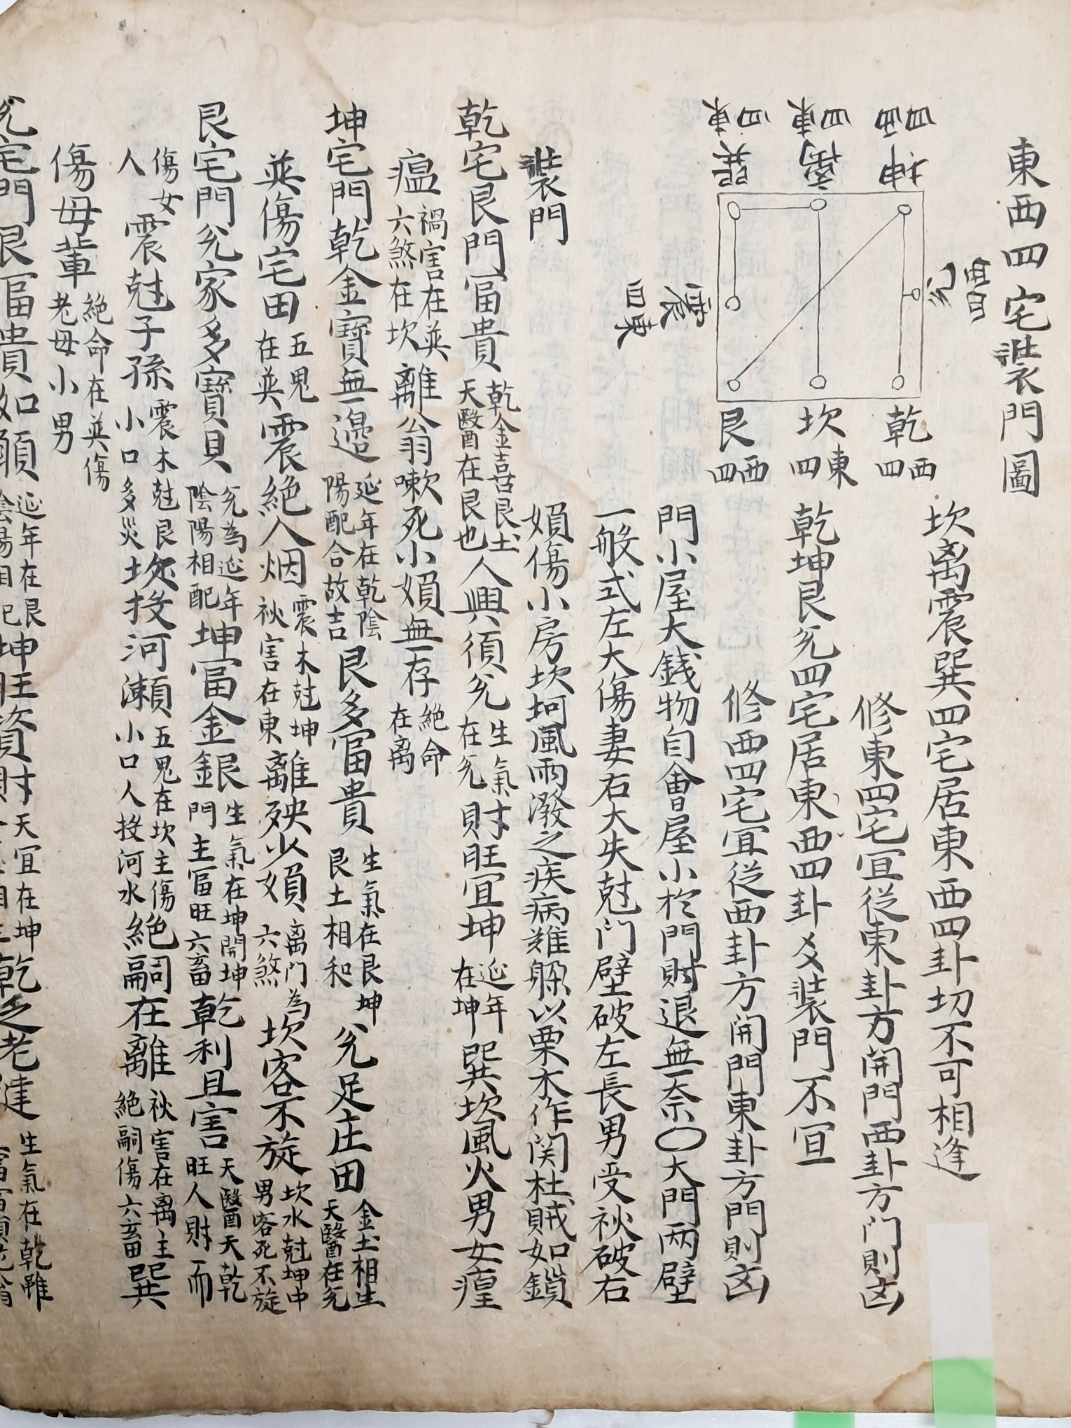 東西四宅裝門圖
坤 西四
離 東四
巽 東四
兌 西四
震 東四
乾 西四
坎 東四
艮 西四
坎离震巽四宅居東西四卦切不可相逢
修東四宅宜從東卦方開門西卦方门則凶
乾坤艮兌四宅居東西四卦爻裝門不宜
修西四宅宜從西卦方開門東卦方門則凶
門小屋大錢物自會屋小於門財退無奈〇大門两壁
一般式左大傷妻右大失尅门壁破左長男受 破右
媍傷小房坎坷風雨潑之疾病難 以栗木作関杜賊如鎖
裝門
乾宅艮門富貴 乾金喜艮土 天醫在艮也 人興須兌 生氣在兌 財旺宜坤 延年在坤 巽坎風火男女瘽
瘟 禍害在巽 六煞在坎 離翁嗽死小媍無存 絕命在离
坤宅門乾金寶無邉 延年在乾陰陽配合故吉 艮多富貴 生氣在艮坤艮土相和 兌足庄田 金土相生天醫在兌
巽傷宅田 五鬼在巽 震絕人烟 震木尅坤 害在東 離殃少媍 离门為六煞 坎客不旋 坎水尅坤中男客死不旋
艮宅門兌家多寶貝 兌為延年陰陽相配 坤富金銀 生氣在坤開坤門主富旺六畜 乾利且害 天醫天乾旺人財而
傷女人 震尅子孫 震木尅艮小口多災 坎投河瀨 五鬼在坎主傷小口人投河水 絕嗣在離 害在离主絕嗣傷六畜 巽
傷母輩 絕命在巽傷老母小男
兌宅門艮富貴如願 延年在艮陰陽相配 坤旺資財 天宜在坤 乾之老健 生氣在乾雖